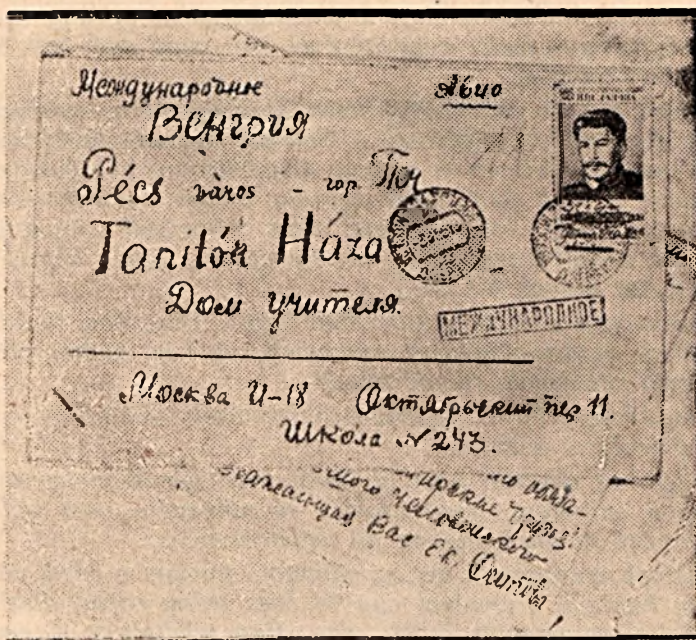 Международное
Авио
Венгрия
Pécs város - гор. Печ
Tanitók Háza
Дом учителя.
МЕЖДУНАРОДНОЕ
Москва И-18 Октябрьский пер 11.
Школа N 243.
Вас Ек.